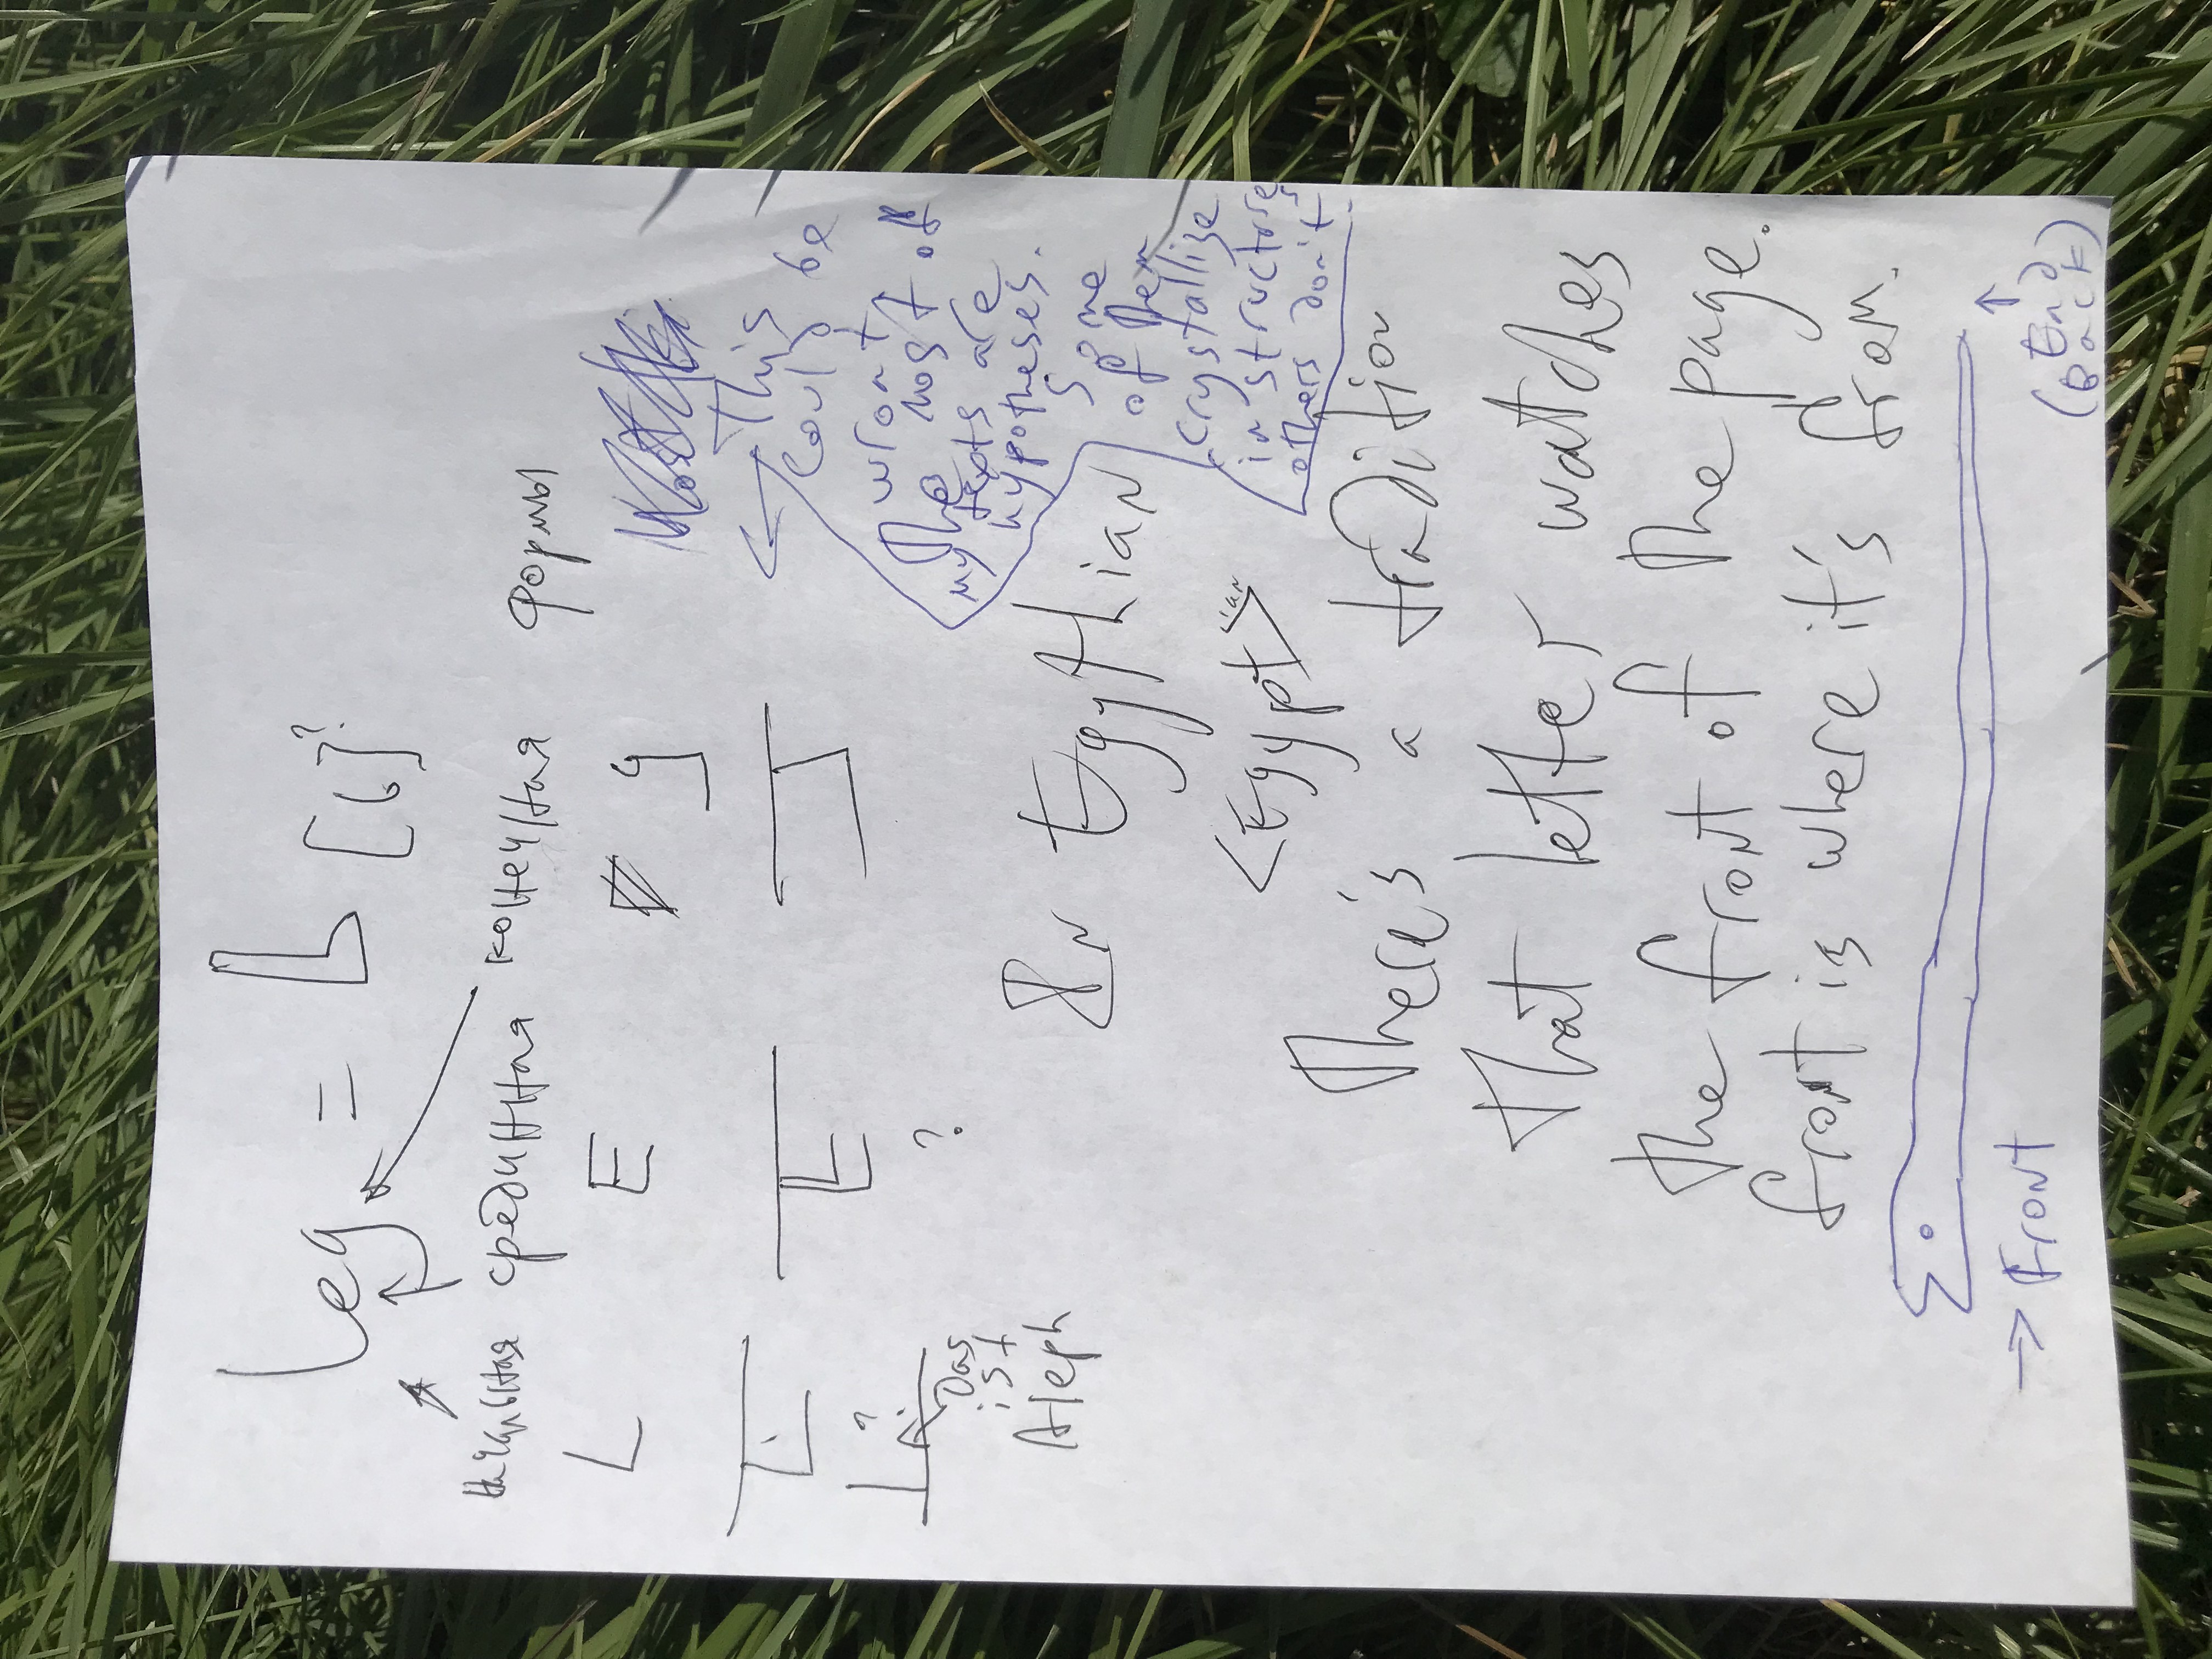 leg = b [b]?
начальная срединная конечная формы
L E g
?
Das
ist
Aleph
?
This
could be
wront.
The most of
my texts are
hypotheses.
Some
of them
crystallize
in structures
others don't
In Egypthian
<Egypt>ian
There's a tradition
that letter watches
the front of the page.
front is where it's from.
→ Front
↑
End
(Back)